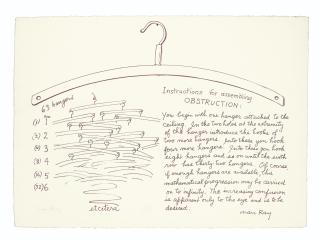 63 hangers
Instructions for assembling
OBSTRUCTION:
(1) 1
(2) 2
(4) 3
(8) 4
(16) 5
(32) 6
etcetera
You begin with one hanger attached to the
ceiling. In the two holes at the extremity
of the hanger introduce the hooks of
two more hangers. Into these you hook
four more hangers. Into these you hook
eight hangers and so on until the sixth
row has thirty two hangers. Of course
if enough hangers are available, this
mathematical progression may be carried
on to infinity. The increasing confusion
is apparent only to the eye and is to be
desired.
Man Ray